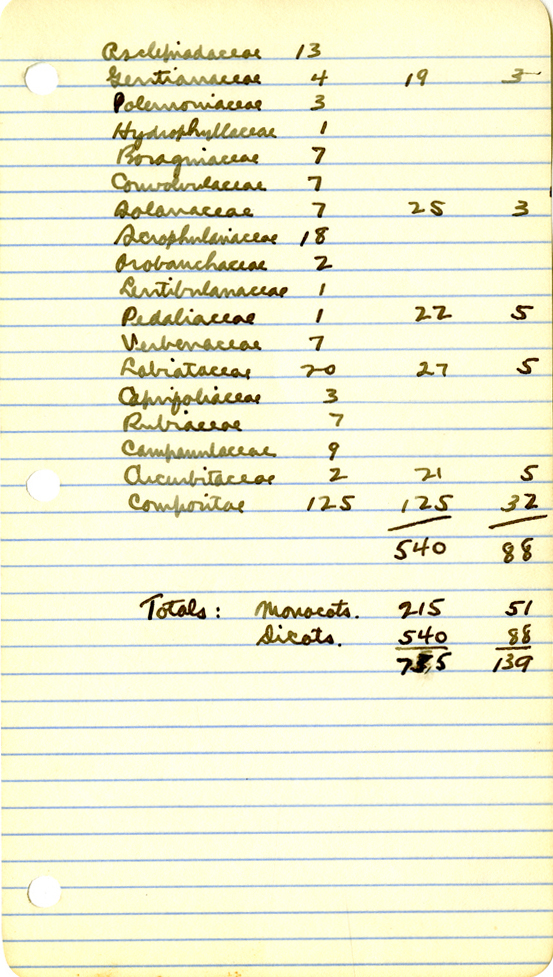 Asclepiadaceae 13
Gentianaceae 4 19 3
Polemoniaceae 3
Hydrophyllaceae 1
Boraginaceae 7
Convolvulaceae 7
Solanaceae 7 25 3
Scrophulariaceae 18
Orobanchaceae 2
Lentibulariaceae 1
Pedaliaceae 1 22 5
Verbenaceae 7
Labiataceae 20 27 5
Caprifoliaceae 3
Rubiaceae 7
Campanulaceae 9
Cucurbitaceae 2 21 5
Compositae 125 125 32
540 88
Totals: Monocots. 215 51
Dicots. 540 88
139